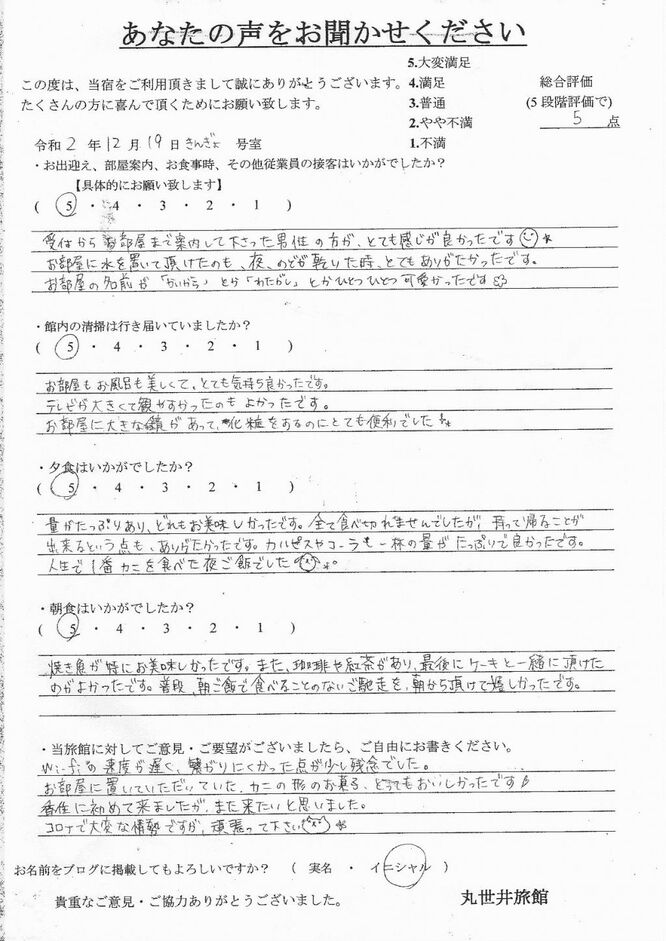 あなたの声をお聞かせください
この度は、当宿をご利用頂きまして誠にありがとうございます。
たくさんの方に喜んで頂くためにお願い致します。
5.大変満足
4.満足
3.普通
2.やや不満
1.不満
総合評価
(5段階評価で)
5 点
令和 2 年 12 月 19 日 きんぎょ 号室
・お出迎え、部屋案内、お食事時、その他従業員の接客はいかがでしたか?
【具体的にお願い致します】
( 5 ・ 4 ・ 3 ・ 2 ・ 1 )
受付からお部屋まで案内して下さった男性の方が、とても感じが良かったです
お部屋に水を置いて頂けたのも、夜、のどが乾いた時、とてもありがたかったです。
お部屋の名前が「かいがら」とか「わたがし」とかひとつひとつ可愛かったです
・館内の清掃は行き届いていましたか?
( 5 ・ 4 ・ 3 ・ 2 ・ 1 )
お部屋もお風呂も美しくて、とても気持ち良かったです。
テレビが大きくて観やすかったのもよかったです。
お部屋に大きな鏡があって、化粧をするのにとても便利でした
・夕食はいかがでしたか?
( 5 ・ 4 ・ 3 ・ 2 ・ 1 )
量がたっぷりあり、どれもお美味しかったです。全て食べ切れませんでしたが、持って帰ることが
出来るという点も、ありがたかったです。カルピスやコーラも一杯の量がたっぷりで良かったです。
人生で1番カニを食べた夜ご飯でした
・朝食はいかがでしたか?
( 5 ・ 4 ・ 3 ・ 2 ・ 1 )
焼き魚が特にお美味しかったです。また、珈琲や紅茶があり、最後にケーキと一緒に頂けた
のがよかったです。普段、朝ご飯で食べることのないご馳走を、朝から頂けて嬉しかったです。
・当旅館に対してご意見・ご要望がございましたら、ご自由にお書きください。
Wi-fiの速度が遅く、繋がりにくかった点が少し残念でした。
お部屋に置いていただいていた、カニの形のお菓子、とってもおいしかったです
香住に初めて来ましたが、また来たいと思いました。
コロナで大変な情勢ですが、頑張って下さい
お名前をブログに掲載してもよろしいですか? ( 実名 ・ イニシャル )
貴重なご意見・ご協力ありがとうございました。
丸世井旅館